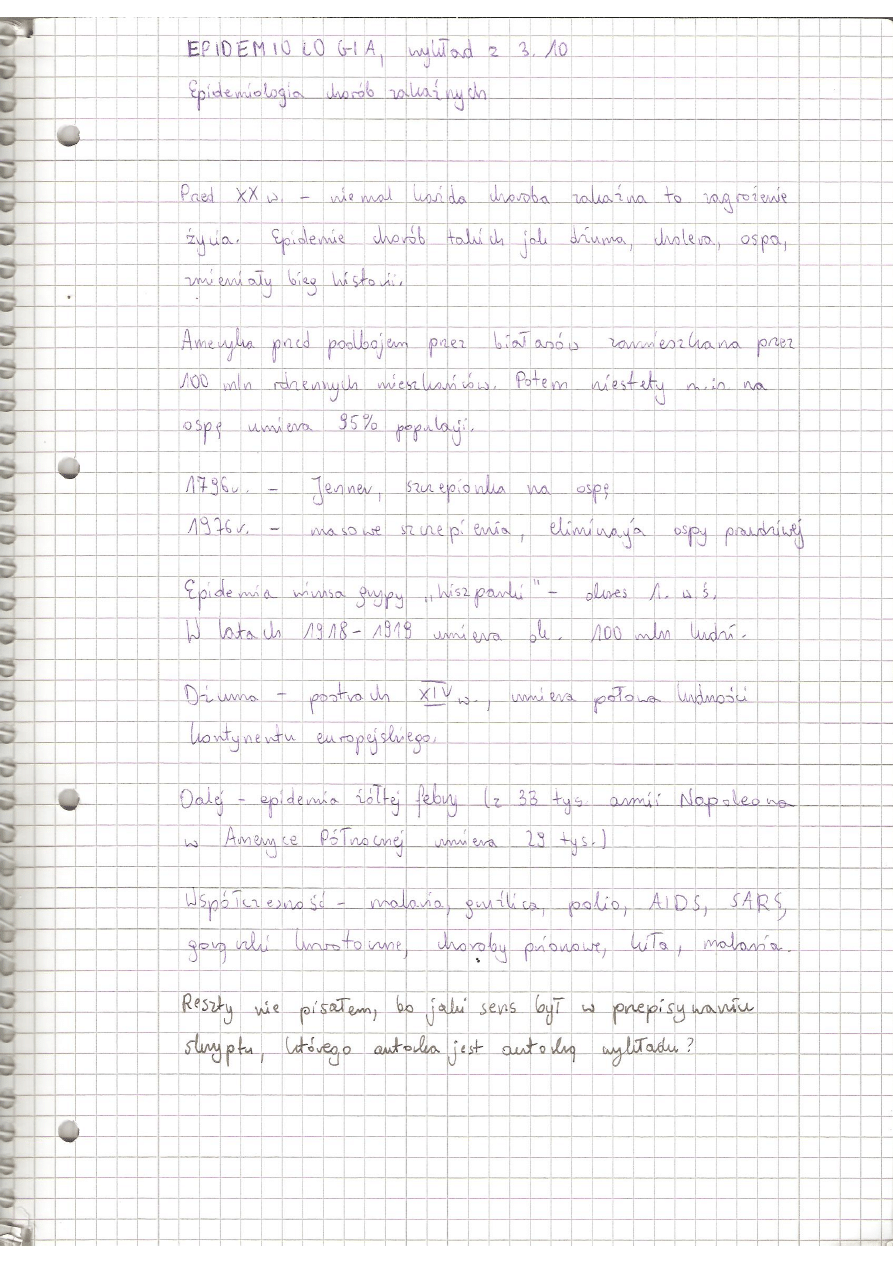 EPIDEMIOLOGIA, wykład z 3.10
Epidemiologia chorób zakaźnych
Przed XX w. - niemal każda choroba zakaźna to zagrożenie
życia. Epidemie chorób takich jak dżuma, cholera, ospa,
zmieniały bieg historii.
Ameryka przed podbojem przez białasów zamieszkana przez
100 mln rdzennych mieszkańców. Potem niestety m.in na
ospę umiera 95% populacji.
1796r. - Jenner, szczepionka na ospę
1976r. - masowe szczepienia, eliminacja ospy prawdziwej
Epidemia wirusa grypy „hiszpanki" - okres 1. w ś.
W latach 1918-1919 umiera ok. 100 mln ludzi.
Dżuma - postrach XIV w., umiera połowa ludności
kontynentu europejskiego.
Dalej - epidemia żółtej febry (z 33 tys. armii Napoleona
w Ameryce Północnej umiera 29 tys.)
Współczesność - malaria, gruźlica, polio, AIDS, SARS,
gorączki krwotoczne, choroby prionowe, kiła, malaria.
Reszty nie pisałem, bo jaki sens był w przepisywaniu
skryptu, którego autorka jest autorką wykładu?